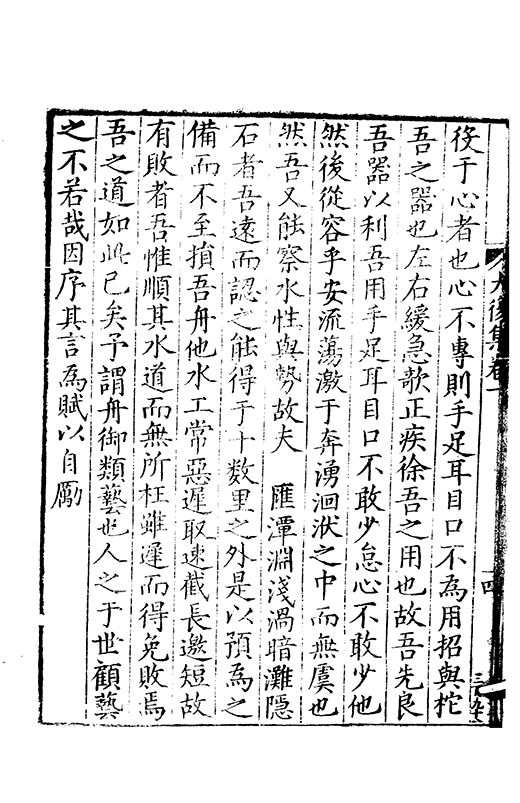 後集卷一
四
役于心者也心不專則手足耳目口不為用招與柁
吾之器也左右緩急欹正疾徐吾之用也故吾先良
吾器以利吾用手足耳目口不敢少怠心不敢少他
然後從容乎安流蕩激于奔湧洄洑之中而無虞也
然吾又能察水性與勢故夫 匯潭淵淺渦暗灘隱
石者吾遠而認之能得于十數里之外是以預為之
備而不至損吾舟他水工常惡遲取速截長邀短故
有敗者吾惟順其水道而無所枉雖遲而得免敗焉
吾之道如此已矣予謂舟御類藝也人之于世顧藝
之不若哉因序其言為賦以自勵